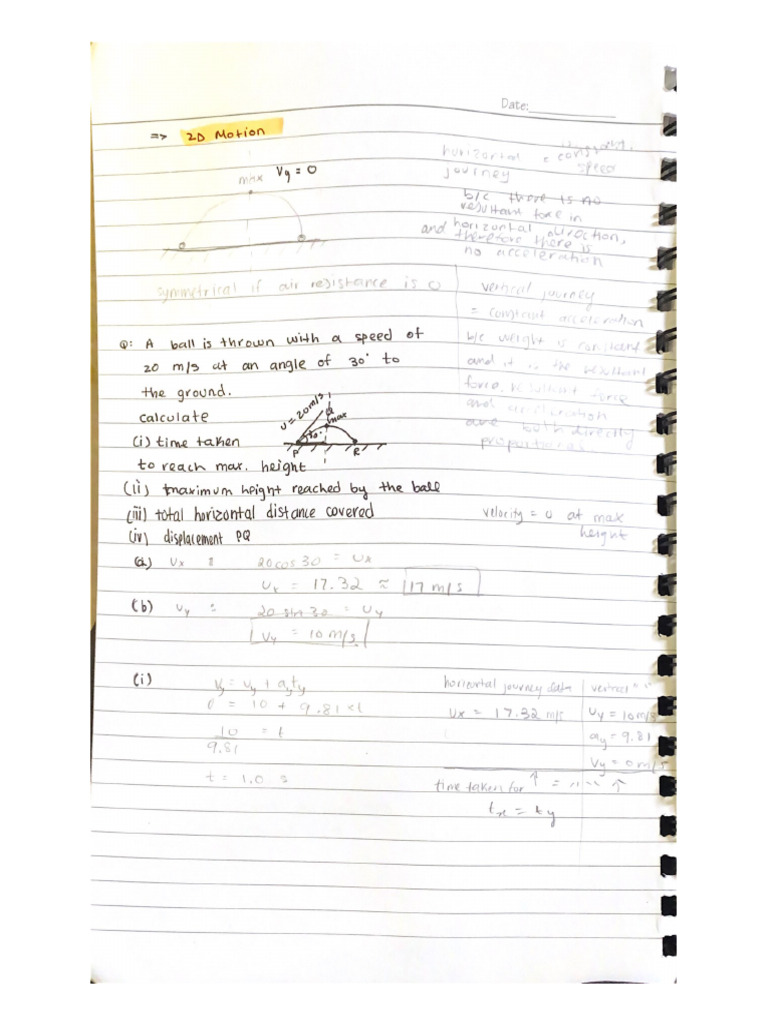 Date:
=> 2D Motion
max Vy = 0
horizontal journey = constant speed
b/c there is no
resultant force in
and horizontal direction,
therefore there is
no acceleration
symmetrical if air resistance is 0
vertical journey
= constant acceleration
b/c weight is constant
and it is the resultant
force, resultant force
and acceleration
are both directly
proportional.
Q: A ball is thrown with a speed of
20 m/s at an angle of 30° to
the ground.
calculate
u = 20m/s
Q
max
30°
P
R
(i) time taken
to reach max. height
(ii) maximum height reached by the ball
(iii) total horizontal distance covered
(iv) displacement PQ
velocity = 0 at max
height
(a) ux : 20cos30 = ux
ux = 17.32 ≈ 17 m/s
(b) uy : 20 sin 30 = uy
uy = 10 m/s
(i) vy = uy + ayty
0 = 10 + 9.81 x t
10 = t
9.81
t = 1.0 s
horizontal journey data
ux = 17.32 m/s
vertical " "
uy = 10m/s
ay = 9.81
vy = 0m/s
time taken for ↑ = " " ↑
tx = ty